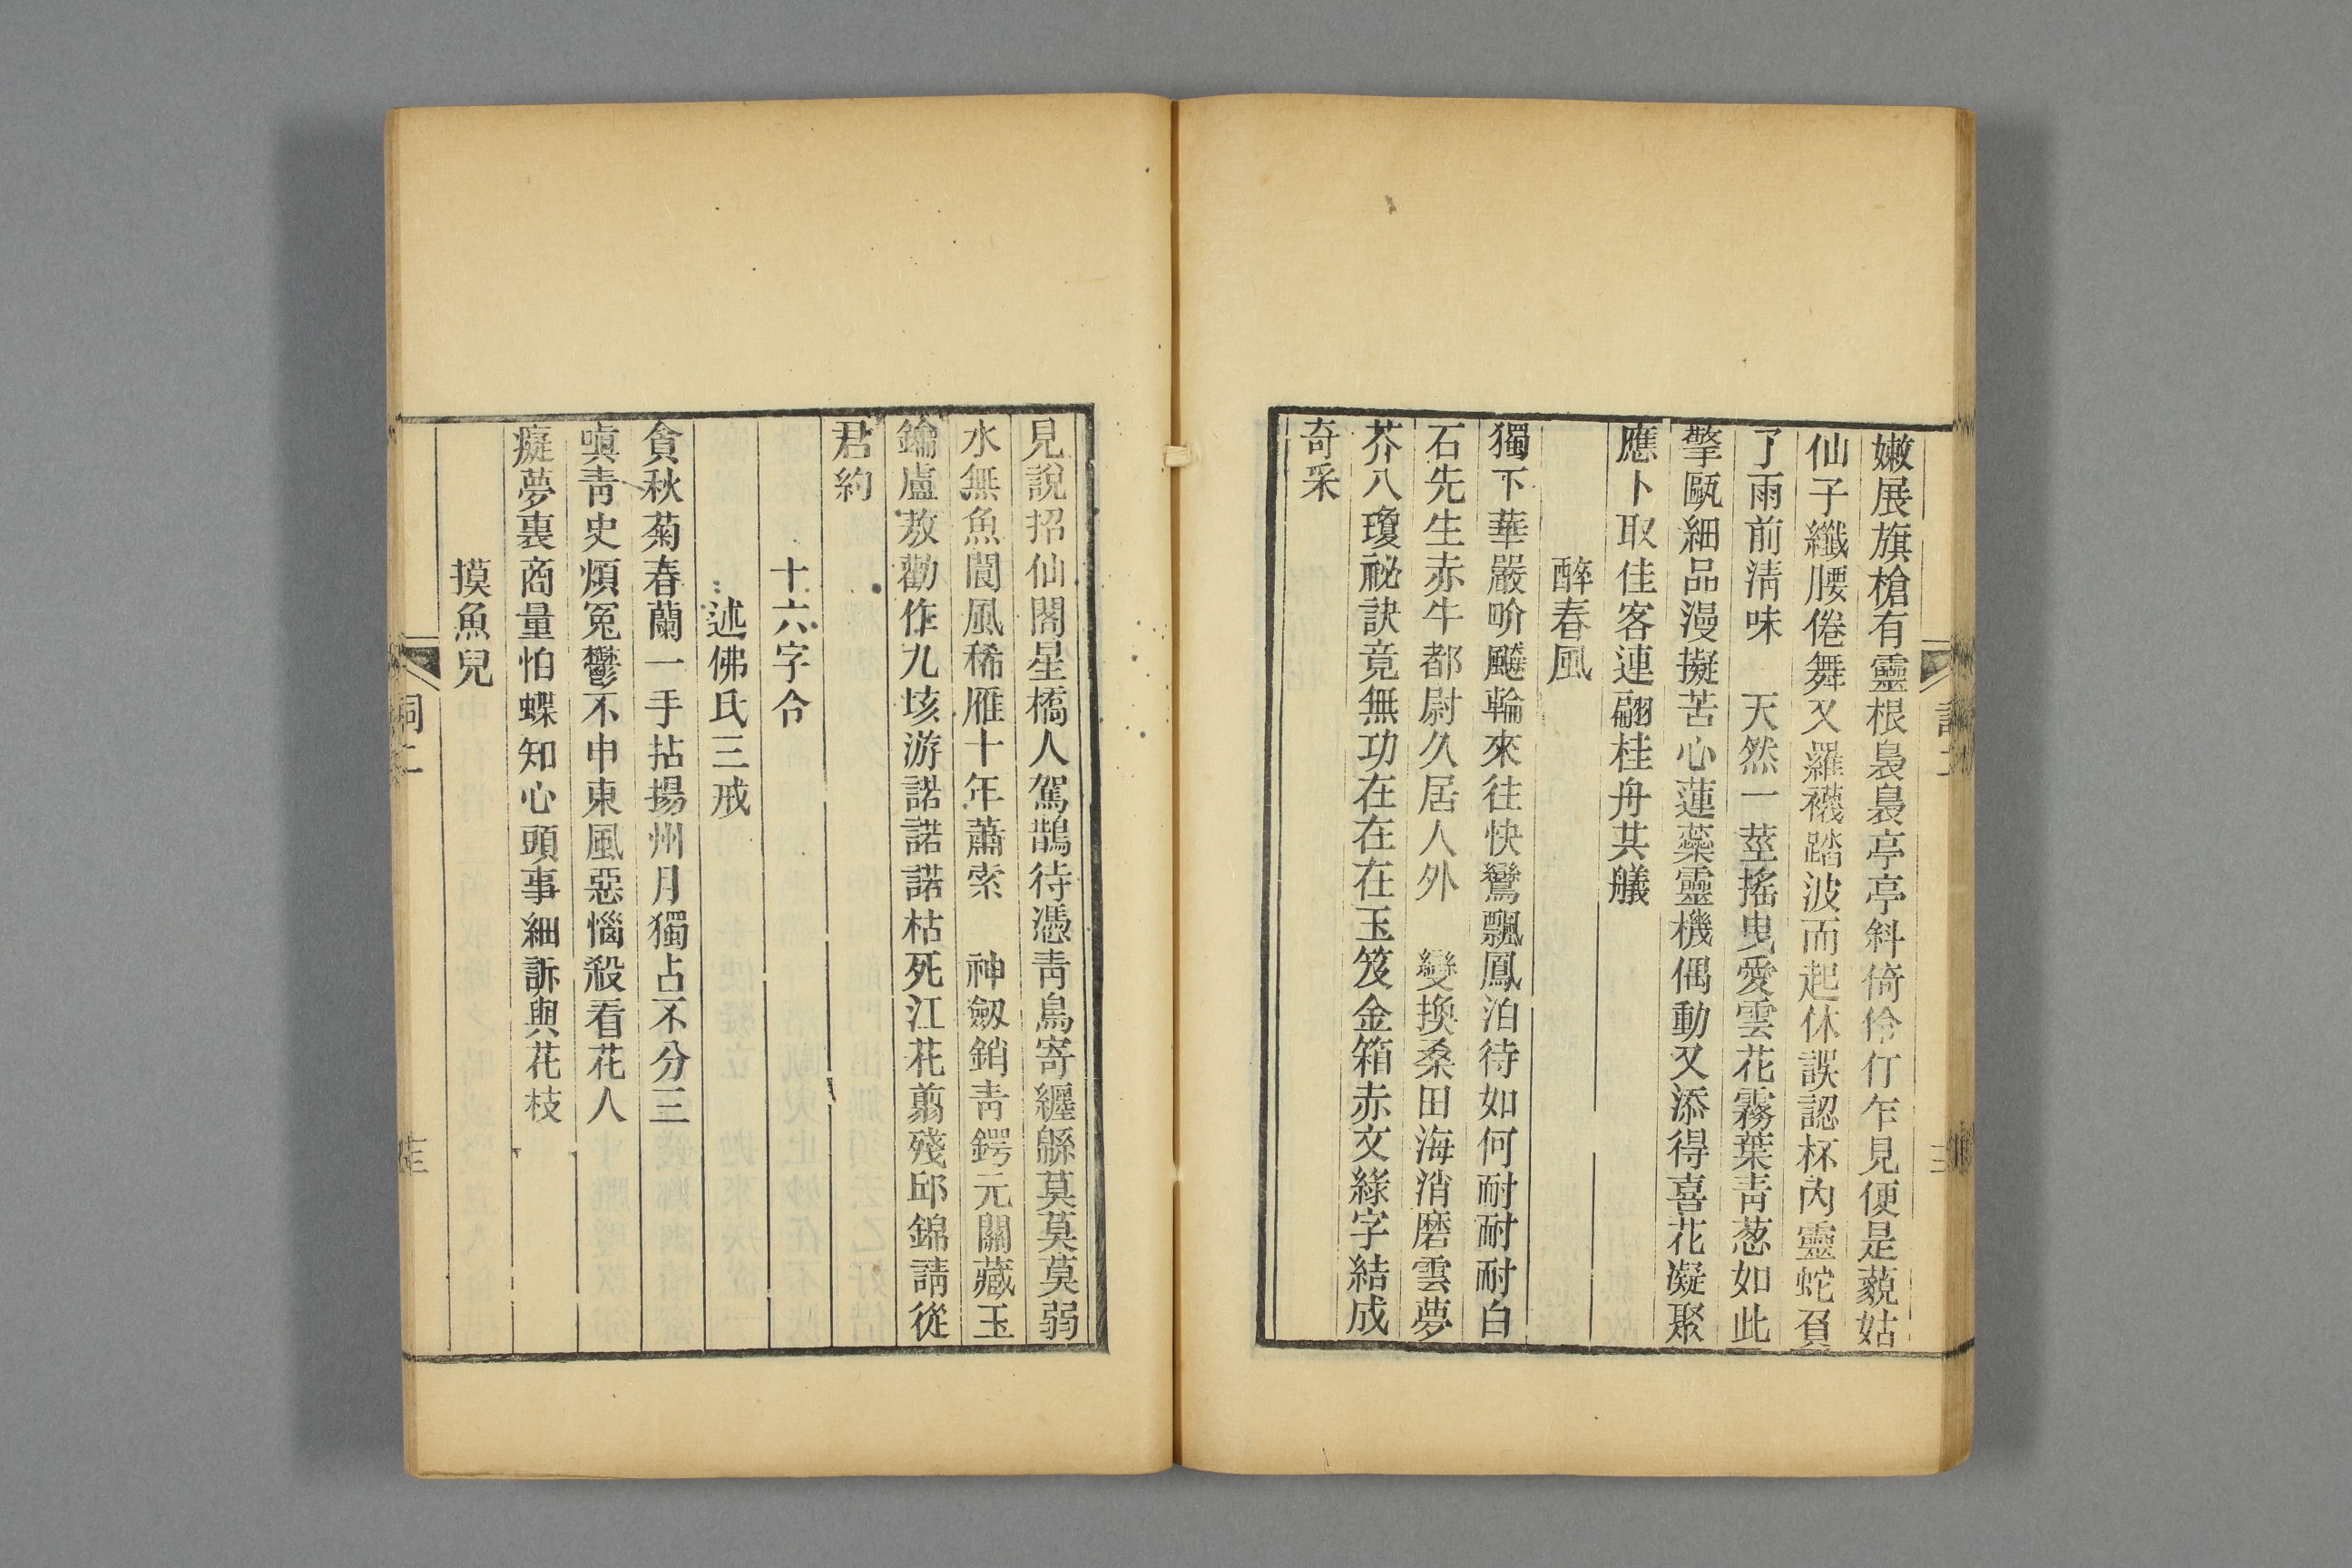 嫩展旗槍有靈根裊裊亭亭斜倚伶仃乍見便是藐姑
仙子纖腰倦舞又羅襪踏波而起休誤認杯內靈蛇負
了雨前淸味　天然一莖搖曳愛雲花霧葉靑葱如此
擎甌細品漫擬苦心蓮蘂靈機偶動又添得喜花凝聚
應卜取佳客連翩桂舟共艤
醉春風
獨下華嚴㕫飈輪來往快鸞飄鳳泊待如何耐耐耐白
石先生赤牛都尉久居人外　變換桑田海消磨雲夢
芥八瓊祕訣竟無功在在在玉笈金箱赤文綠字結成
奇采
見說招仙閣星橋人駕鵲待憑靑鳥寄纒緜莫莫莫弱
水無魚閬風稀雁十年蕭索　神劔銷靑鍔元關藏玉
鑰盧敖勸作九垓游諾諾諾枯死江花翦殘邱錦請從
君約
十六字令
述佛氏三戒
貪秋菊春蘭一手拈揚州月獨占不分三
嗔靑史煩冤鬱不申東風惡惱殺看花人
癡夢裏商量怕蝶知心頭事細訴與花枝
摸魚兒
詞二